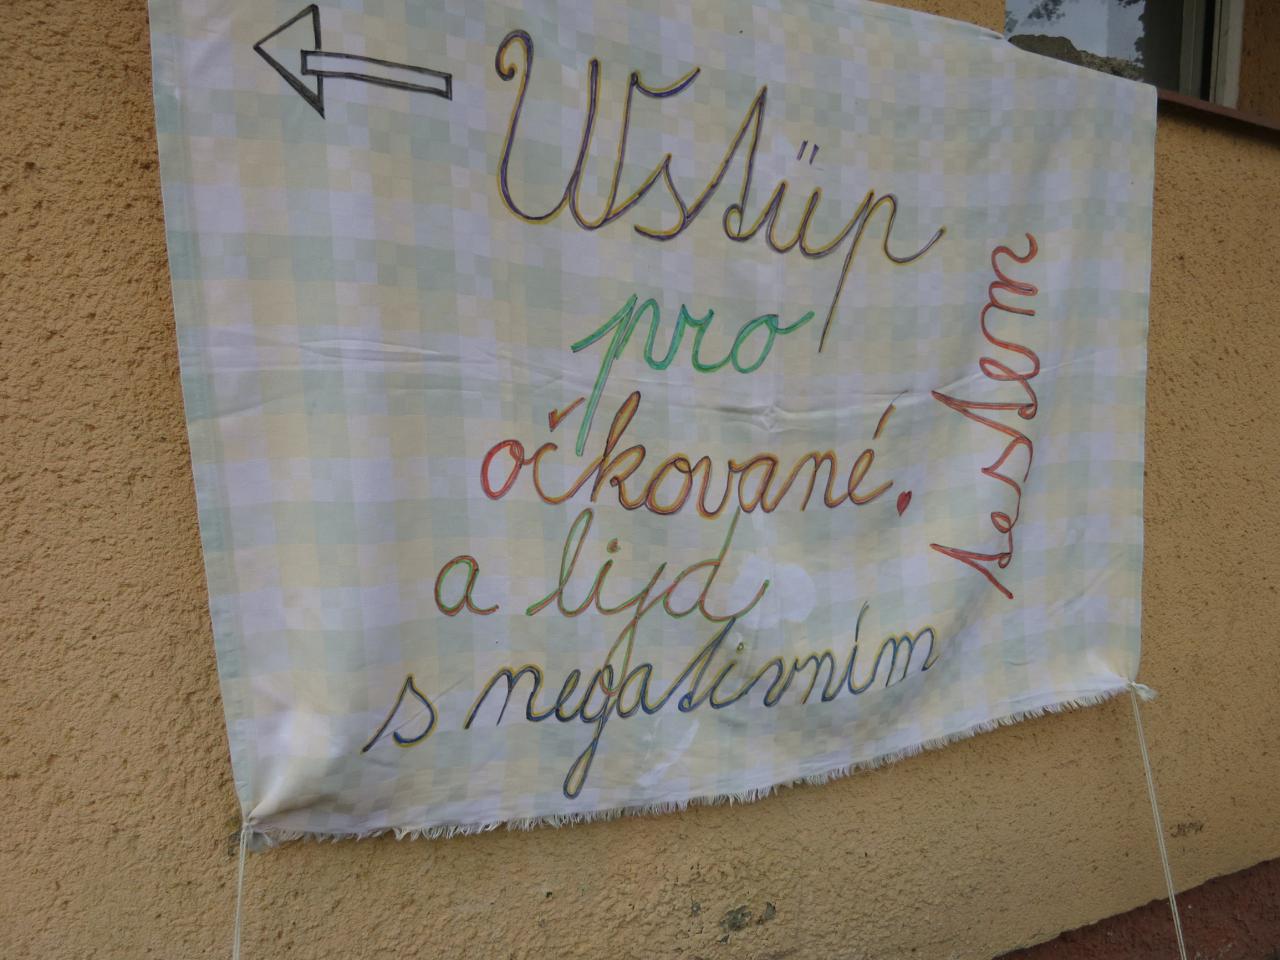 Wstüp
pro
očkované.
a lijd
s negativním
testem